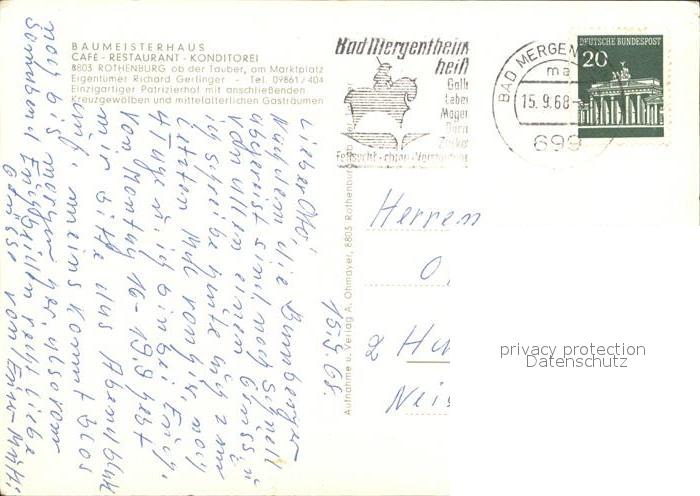 BAUMEISTERHAUS
CAFÉ - RESTAURANT - KONDITOREI
8803 ROTHENBURG ob der Tauber, am Marktplatz
Eigentümer Richard Gerlinger - Tel. 09861/404
Einzigartiger Patrizierhof mit anschließenden
Kreuzgewölben und mittelalterlichen Gasträumen
Bad Mergentheim
heil
Gall
Leber
Magen
Darm
Zucker
Fettsucht
BAD MERGEN
15.9.68
699
DEUTSCHE BUNDESPOST
20
Aufnahme u. Verlag A. Ohmayer, 8803 Rothenburg ob
15.9.68
Lieber Otto!
Nachdem die Bamberger
abgereist sind, noch schnell
von allen einen Gruss, u.
ich schreibe heute dich zum
letzten Mal von hier, noch
4 Tage u. ich bin bei Euch,
Von Montag 16-19.9 hebt
mir bitte das Abendblatt
auf, meins kommt blos
noch bis morgen her, also vom
Sonnabend
liebe
Grüsse von
Herren
O
2 H
Nei
privacy protection
Datenschutz